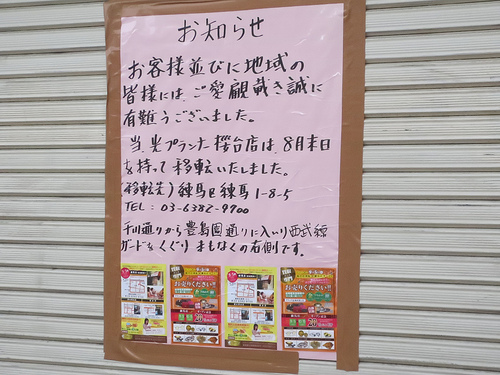 お知らせ
お客様並びに地域の
皆様には、ご愛顧戴き誠に
有難うございました。
当、光プランナー桜台店は、8月末日
を持って移転いたしました。
(移転先) 練馬区練馬1-8-5
TEL: 03-6382-9700
千川通りから豊島園通りに入り西武線
ガードをくぐり まもなくの右側です。
お売りください!!
お売りください!!